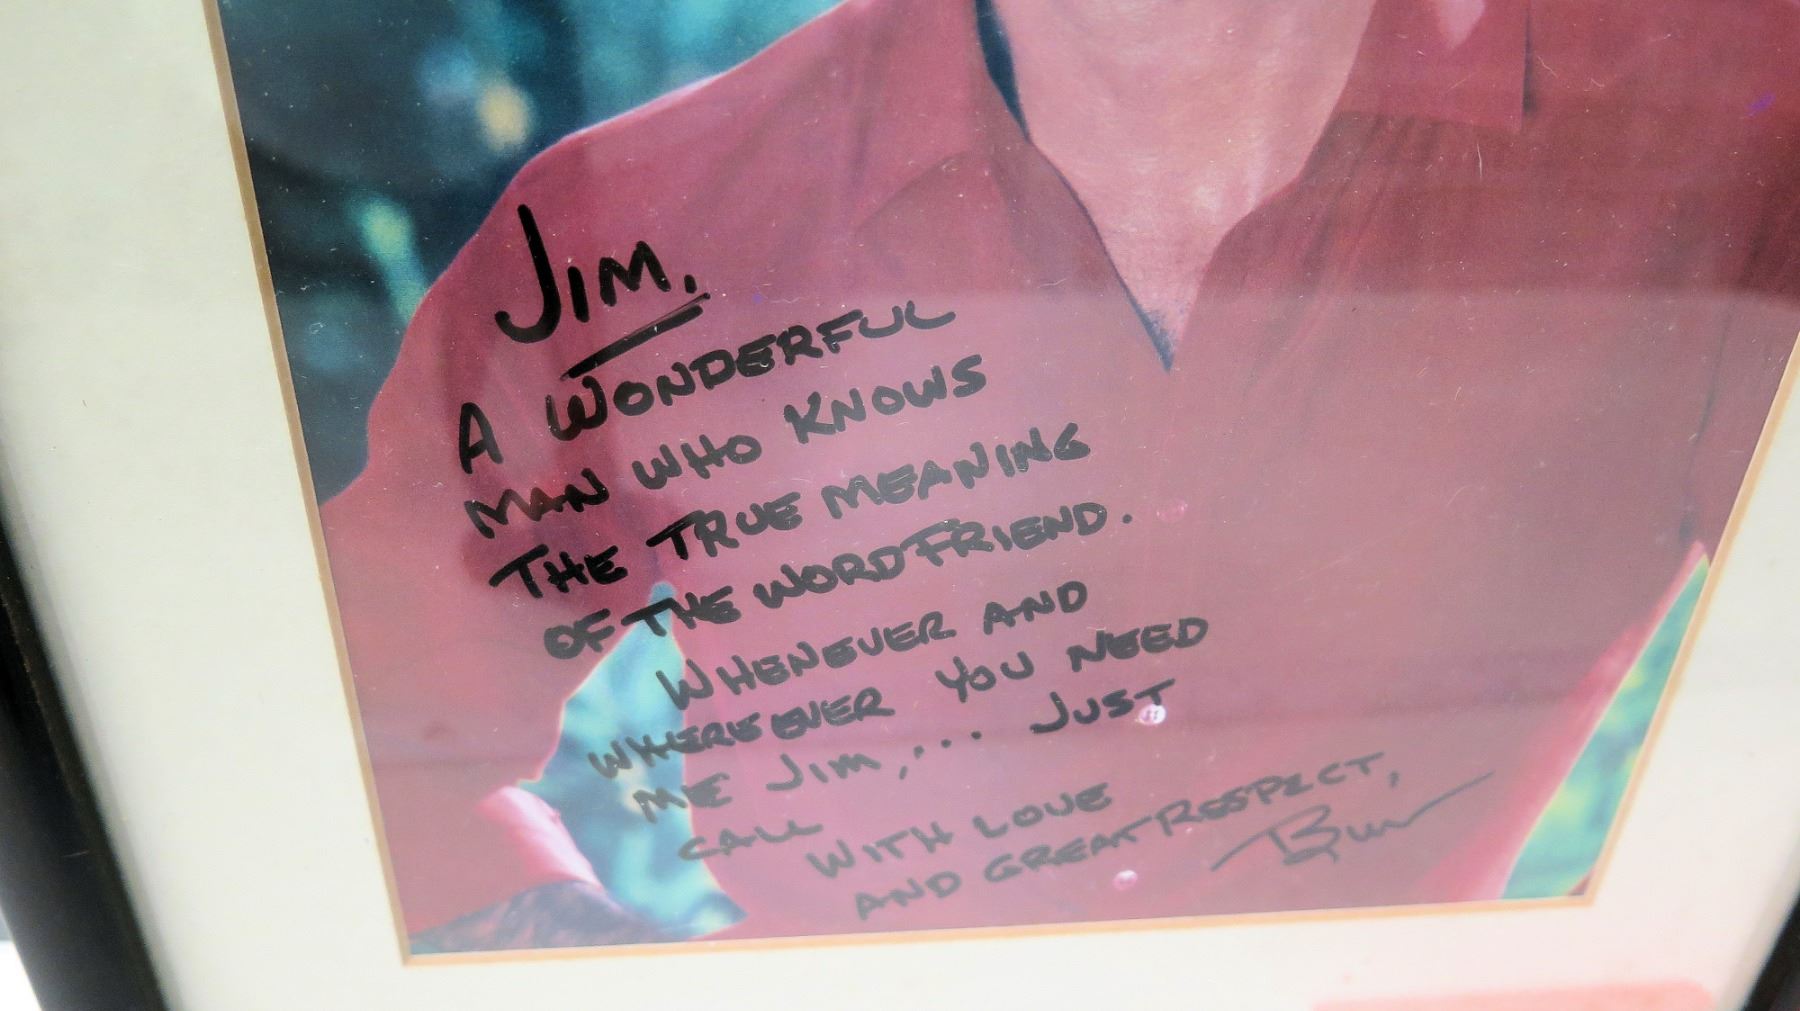 JIM,
A WONDERFUL
MAN WHO KNOWS
THE TRUE MEANING
OF THE WORD FRIEND.
WHENEVER AND
WHEREEVER YOU NEED
ME JIM,... JUST
CALL
WITH LOVE
AND GREAT RESPECT,